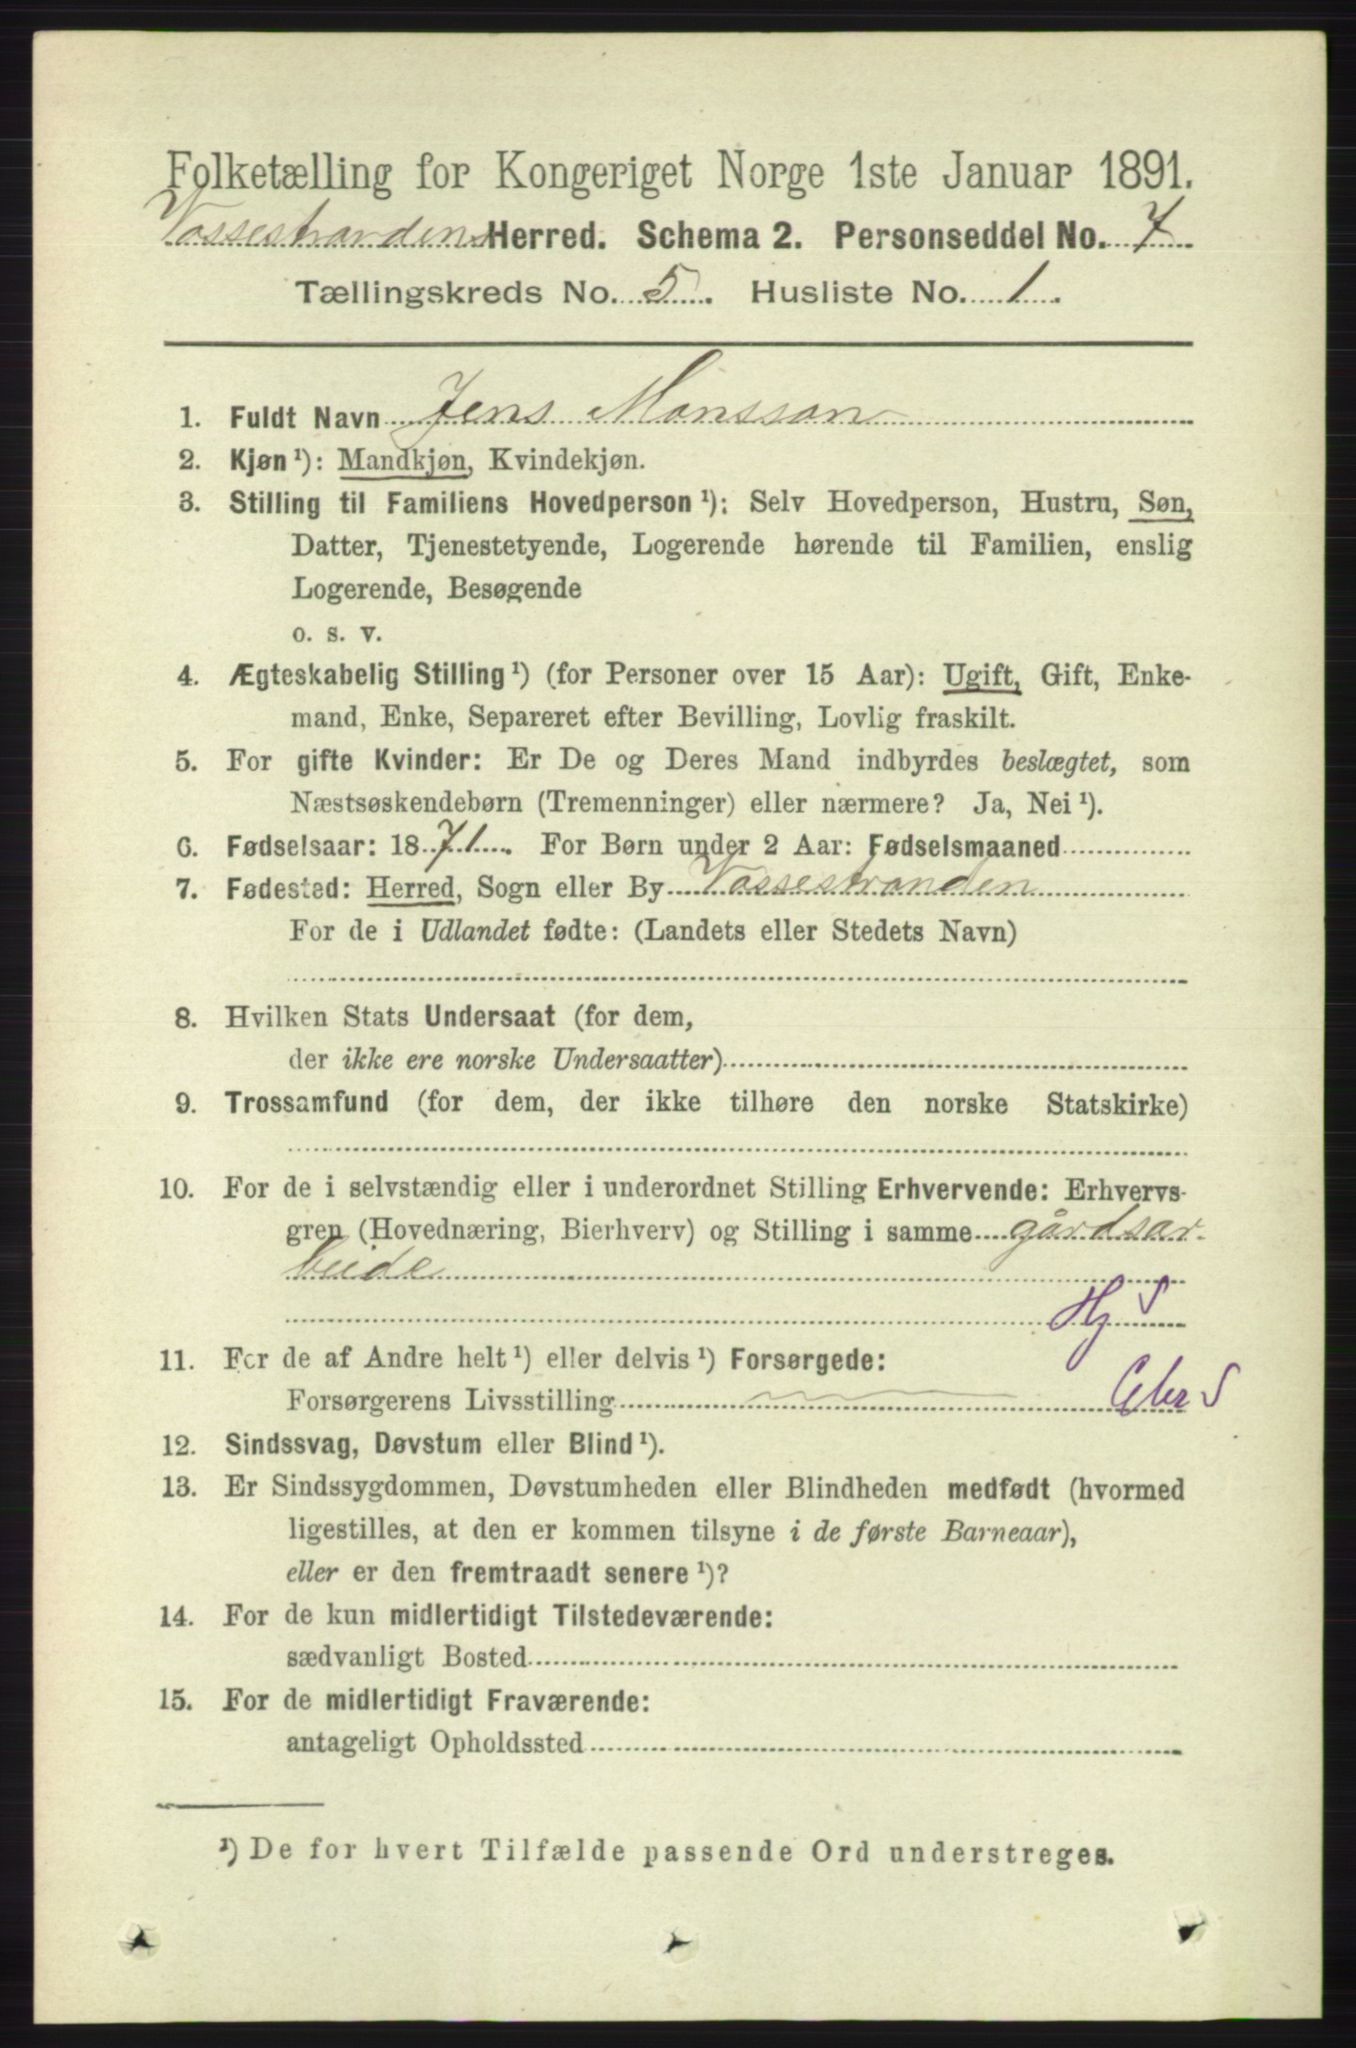 Folketælling for Kongeriget Norge 1ste Januar 1891.
Vossestrandens Herred. Schema 2. Personseddel No. 7
Tællingskreds No. 5. Husliste No. 1.
1. Fuldt Navn Jens Monsson
2. Kjøn ¹): Mandkjøn, Kvindekjøn.
3. Stilling til Familiens Hovedperson ¹): Selv Hovedperson, Hustru, Søn,
Datter, Tjenestetyende, Logerende hørende til Familien, enslig
Logerende, Besøgende
o. s. v.
4. Ægteskabelig Stilling ¹) (for Personer over 15 Aar): Ugift, Gift, Enke-
mand, Enke, Separeret efter Bevilling, Lovlig fraskilt.
5. For gifte Kvinder: Er De og Deres Mand indbyrdes beslægtet, som
Næstsøskendebørn (Tremenninger) eller nærmere? Ja, Nei ¹).
6. Fødselsaar: 1871. For Børn under 2 Aar: Fødselsmaaned
7. Fødested: Herred, Sogn eller By Vossestranden
For de i Udlandet fødte: (Landets eller Stedets Navn)
8. Hvilken Stats Undersaat (for dem,
der ikke ere norske Undersaatter)
9. Trossamfund (for dem, der ikke tilhøre den norske Statskirke)
10. For de i selvstændig eller i underordnet Stilling Erhvervende: Erhvervs-
gren (Hovednæring, Bierhverv) og Stilling i samme gårdsar-
beide
Hj S
11. For de af Andre helt ¹) eller delvis ¹) Forsørgede:
Forsørgerens Livsstilling
12. Sindssvag, Døvstum eller Blind ¹).
13. Er Sindssygdommen, Døvstumheden eller Blindheden medfødt (hvormed
ligestilles, at den er kommen tilsyne i de første Barneaar),
eller er den fremtraadt senere ¹)?
14. For de kun midlertidigt Tilstedeværende:
sædvanligt Bosted
15. For de midlertidigt Fraværende:
antageligt Opholdssted
¹) De for hvert Tilfælde passende Ord understreges.